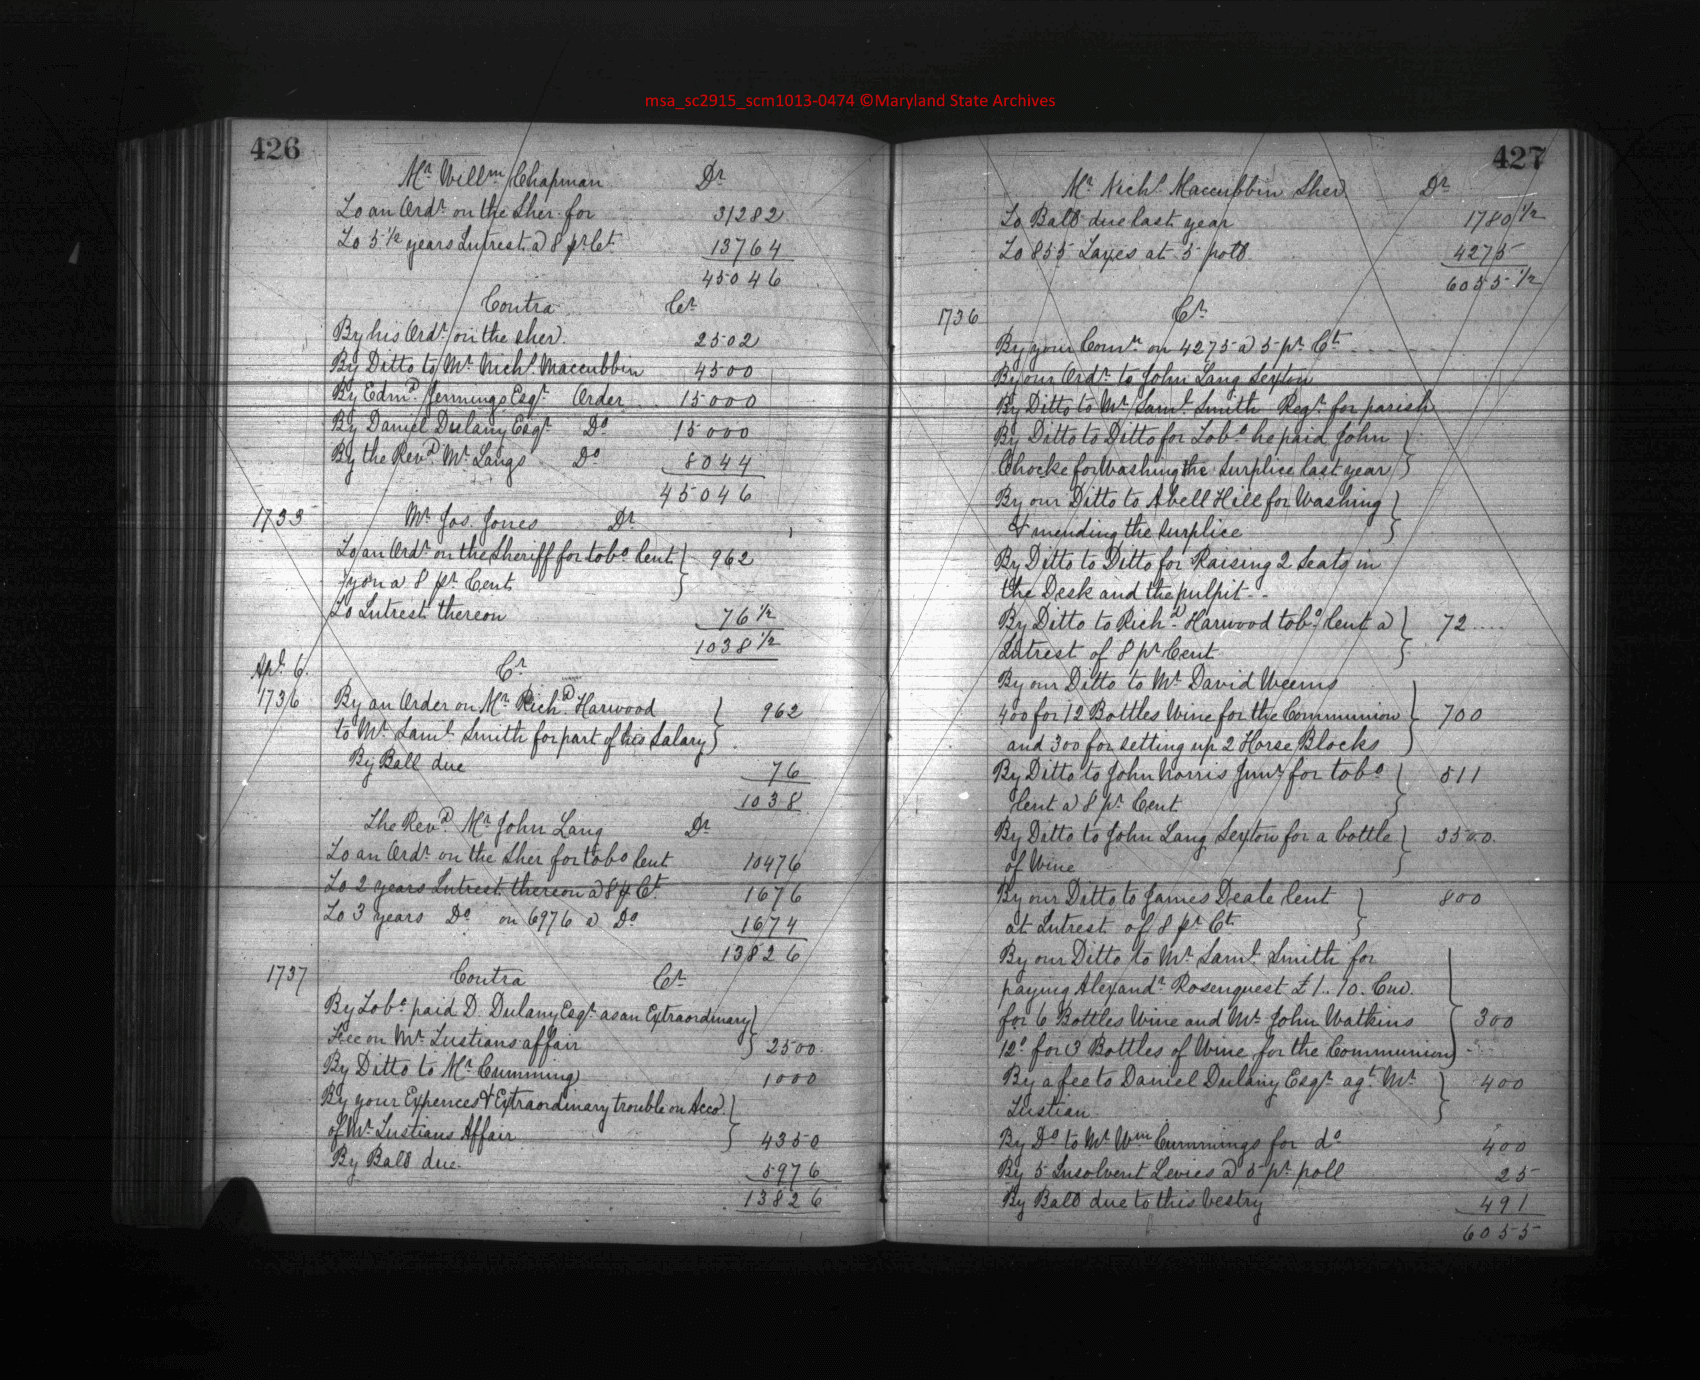 msa_sc2915_scm1013-0474 ©Maryland State Archives
426
Mr. Willm Chapman Dr
To an Ordr on the Sher. for 31282
To 5 1/2 years Intrest a 8 pr Ct. 13764
45046
Contra Cr
By his Ordr on the sher. 2502
By Ditto to Mr Nichs Maccubbin 4500
By Edmd Jennings Esqr Order 15000
By Daniel Dulany Esqr Do 15000
By the Revd Mr Langs Do 8044
45046
1733 Mr Jos. Jones Dr
To an Ordr on the Sheriff for tobo lent } 962
you a 8 pr Cent
To Intrest thereon 76 1/2
1038 1/2
Apl. 6. Cr
1736 By an Order on Mr Richd Harwood } 962
to Mr Saml Smith for part of his Salary
By Ball due 76
1038
The Revd Mr John Lang Dr
To an Ordr on the Sher for tobo lent 10476
To 2 years Intrest thereon a 8 p Ct 1676
To 3 years Do on 6976 a Do 1674
13826
1737 Contra Cr
By Tobo paid D. Dulany Esqr as an Extraordinary }
Fee on Mr Tustians affair 2500
By Ditto to Mr Cumming 1000
By your Expences & Extraordinary trouble on Acco. }
of Mr Tustians Affair 4350
By Ball due 5976
13826
427
Mr Nichs Maccubbin Sher Dr
To Ball due last year 1780 1/2
To 855 Taxes at 5 poll 4275
6055 1/2
1736 Cr
By your Comn on 4275 a 5 pr Ct
By our Ordr to John Lang Sexton
By Ditto to Mr Saml Smith Regr for parish
By Ditto to Ditto for Tobo he paid John }
Chocke for Washing the Surplice last year
By our Ditto to Abell Hill for Washing }
& mending the Surplice
By Ditto to Ditto for Raising 2 Seats in
the Desk and the pulpit
By Ditto to Richd Harwood tobo lent a } 72
Intrest of 8 pr Cent
By our Ditto to Mr David Weems
400 for 12 Bottles Wine for the Communion } 700
and 300 for setting up 2 Horse Blocks
By Ditto to John Norris Junr for tobo } 511
lent a 8 pr Cent
By Ditto to John Lang Sexton for a bottle } 3500
of Wine
By our Ditto to James Deale lent } 800
at Intrest of 8 pr Ct
By our Ditto to Mr Saml Smith for
paying Alexandr Rosenquest £1..10. Cur.
for 6 Bottles Wine and Mr John Watkins } 300
12s for 3 Bottles of Wine for the Communion
By a fee to Daniel Dulany Esqr agt Mr } 400
Tustian
By Do to Mr Wm Cummings for do 400
By 5 Insolvent Levies a 5 pr poll 25
By Ball due to this vestry 491
6055